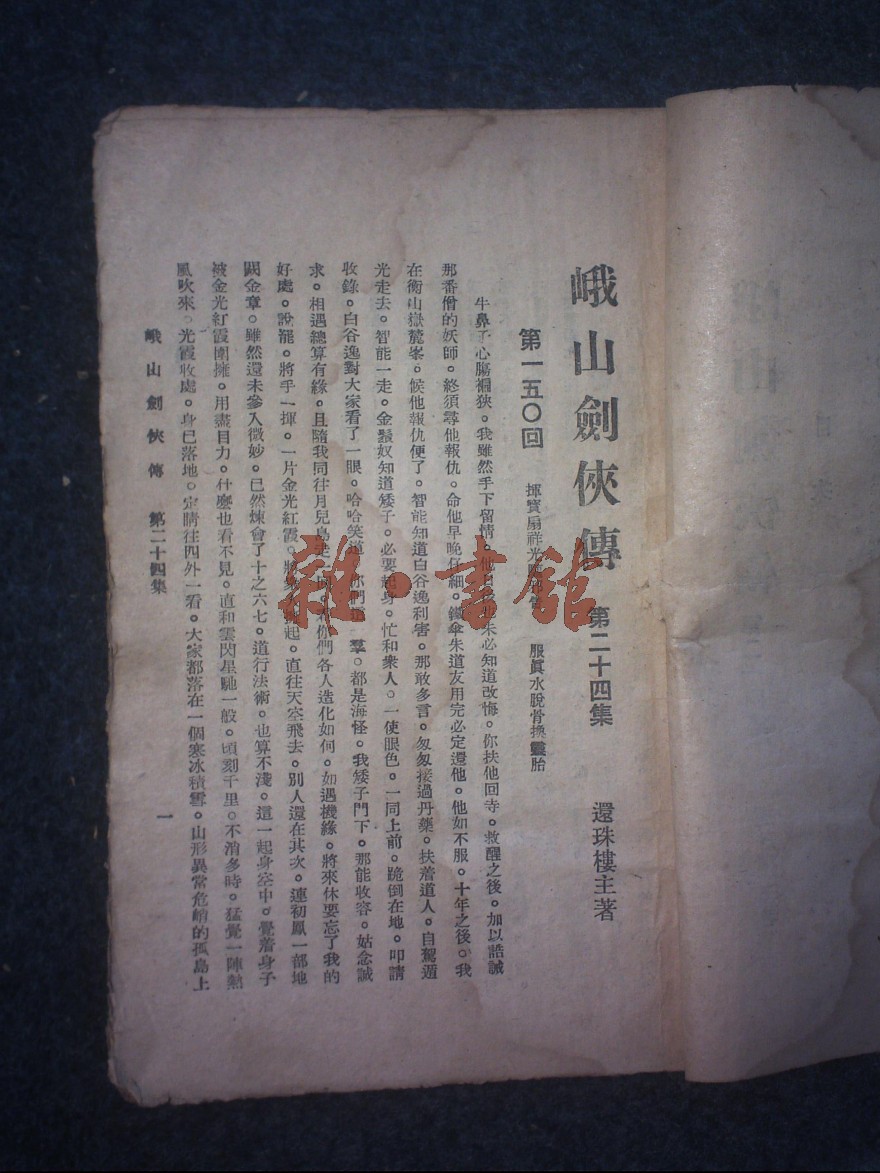 峨山劍俠傳 第二十四集 還珠樓主著
第一五〇回 揮寶扇祥光 服眞水脫骨換靈胎
牛鼻子心腸褊狹。我雖然手下留情。他 未必知道改悔。你扶他回寺。救醒之後。加以誥誡
那番僧的妖師。終須尋他報仇。命他早晚仔細。鐵傘朱道友用完必定還他。他如不服。十年之後。我
在衡山嶽麓峯。候他報仇便了。智能知道白谷逸利害。那敢多言。匆匆接過丹藥。扶着道人。自駕遁
光走去。智能一走。金鬚奴知道矮子。必要起身。忙和衆人。一使眼色。一同上前。跪倒在地。叩請
收錄。白谷逸對大家看了一眼。哈哈笑道。你們這一羣。都是海怪。我矮子門下。那能收容。姑念誠
求。相遇總算有緣。且隨我同往月兒島走一 看你們各人造化如何。如遇機緣。將來休要忘了我的
好處。說罷。將手一揮。一片金光紅霞。將衆 起。直往天空飛去。別人還在其次。連初鳳一部地
闕金章。雖然還未參入微妙。已然煉會了十之六七。道行法術。也算不淺。這一起身空中。覺着身子
被金光紅霞圍擁。用盡目力。什麼也看不見。直和雲閃星馳一般。頃刻千里。不消多時。猛覺一陣熱
風吹來。光霞收處。身已落地。定睛往四外一看。大家都落在一個寒冰積雪。山形異常危峭的孤島上
峨山劍俠傳 第二十四集 一
雜·書館